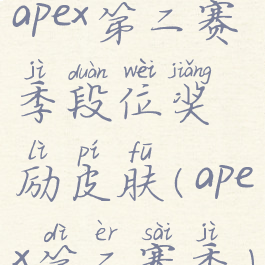 apex第二赛
jì duàn wèi jiǎng
季段位奖
lì pí fū
励皮肤(ape
dì èr sài jì
x第二赛季)